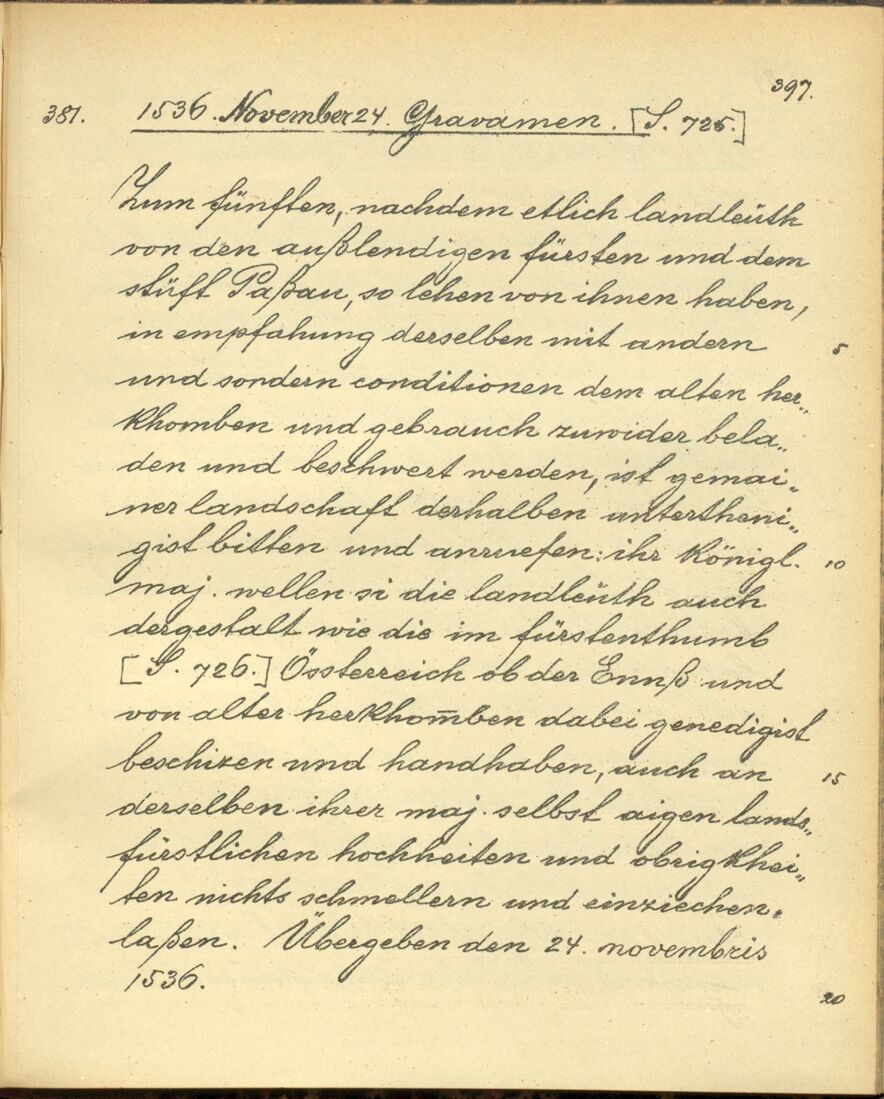 397.
381. 1536. November 24. Gravamen. [S. 725.]
Zum fünften, nachdem etlich landleüth
von den außlendigen fürsten und dem
stüft Paßau, so lehen von ihnen haben,
in empfahung derselben mit andern 5
und sondern conditionen dem alten her„
khomben und gebrauch zuwider bela„
den und beschwert werden, ist gemai„
ner landschaft derhalben untertheni„
gist bitten und anruefen: ihr königl. 10
maj. wellen si die landleüth auch
dergestalt wie die im fürstenthumb
[S. 726.] Össterreich ob der Ennß und
von alter herkhom̄ben dabei genedigist
beschizen und handhaben, auch an 15
derselben ihrer maj. selbst aigen lands„
fürstlichen hochheiten und obrigkhei„
ten nichts schmellern und einziechen
laßen. Übergeben den 24. novembris
1536. 20